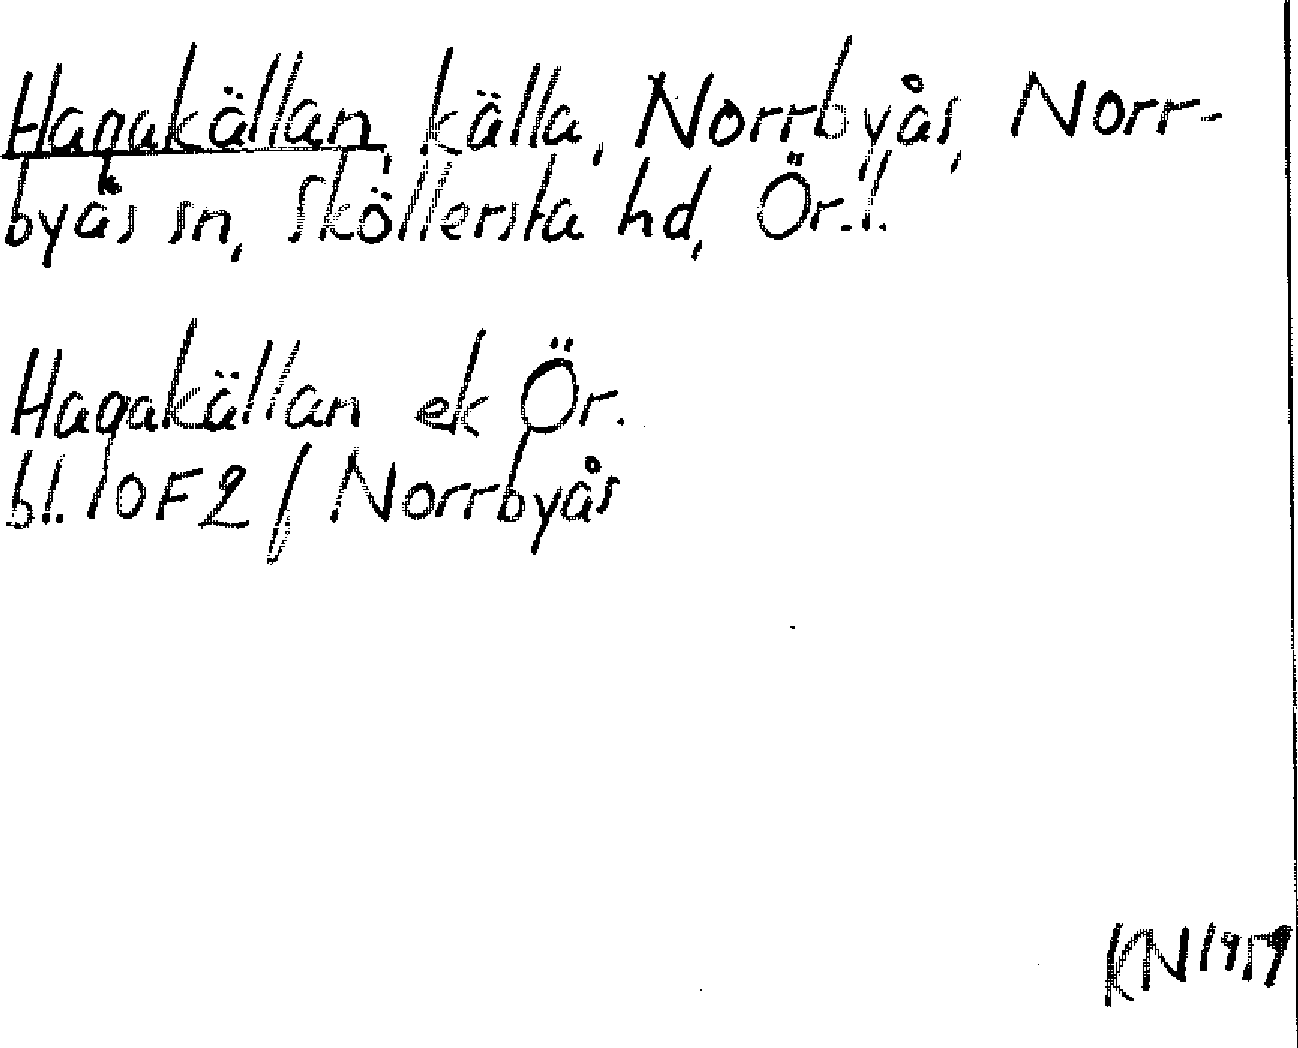 Hagakällan, källa, Norrbyås, Norr-
byås sn, Sköllersta hd, Ör.l.
Hagakällan ek Ör.
bl. 10F2f Norrbyås
KN 1959